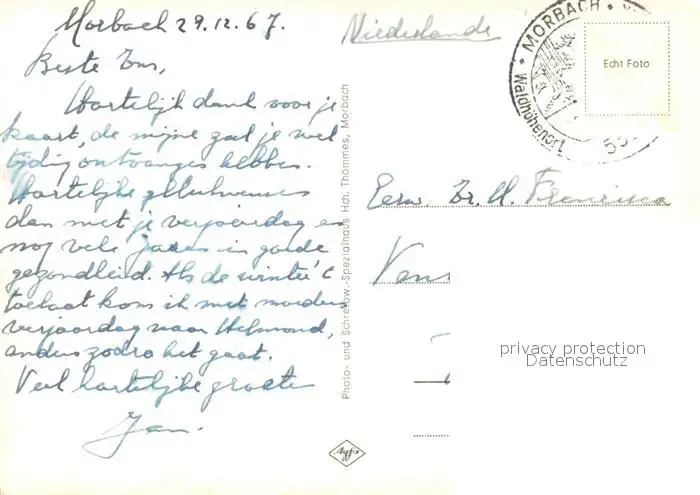 Morbach 29.12.67.
Beste Ons,
Hartelijk dank voor je
kaart, de mijne zal je wel
tijdig ontvangen hebben.
Hartelijke gelukwensen
dan met je verjaardag en
nog vele jaren in goede
gezondheid. Als de winter 't
toelaat kom ik met moeders
verjaardag naar Helmond,
anders zodra het gaat.
Veel hartelijke groeten
Jan.
Photo- und Schreibw.-Spezialhaus Hch. Thömmes, Morbach
Agfa
Niederlande
MORBACH
Waldhöhenort
55
Echt Foto
Eerw. Zr. M. Francisca
privacy protection
Datenschutz